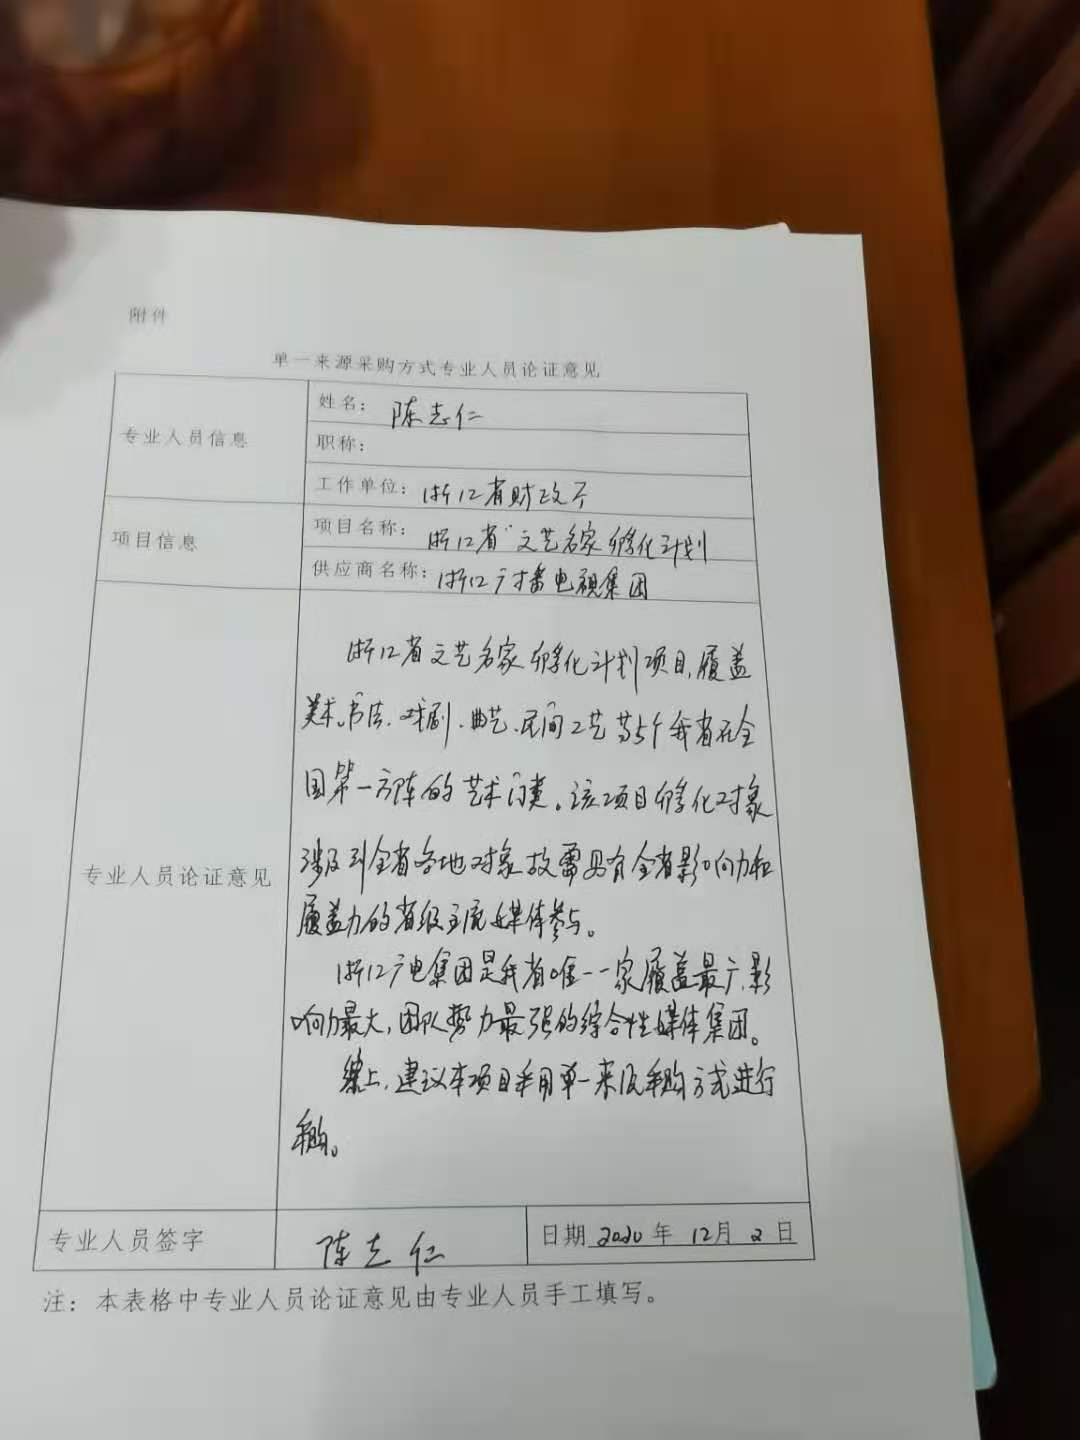 附件
单一来源采购方式专业人员论证意见
专业人员信息
姓名：陈志仁
职称：
工作单位：浙江省财政厅
项目信息
项目名称：浙江省"文艺名家孵化计划
供应商名称：浙江广播电视集团
专业人员论证意见
浙江省文艺名家孵化计划项目，覆盖
美术、书法、戏剧、曲艺、民间工艺等5个我省在全
国第一方阵的艺术门类。该项目孵化对象
涉及到全省各地对象故需要有全省影响力和
覆盖力的省级主流媒体参与。
浙江广电集团是我省唯一一家覆盖最广，影
响力最大，团队势力最强的综合性媒体集团。
综上，建议本项目采用单一来源采购方式进行
采购。
专业人员签字
陈志仁
日期 2020年 12月 2日
注：本表格中专业人员论证意见由专业人员手工填写。